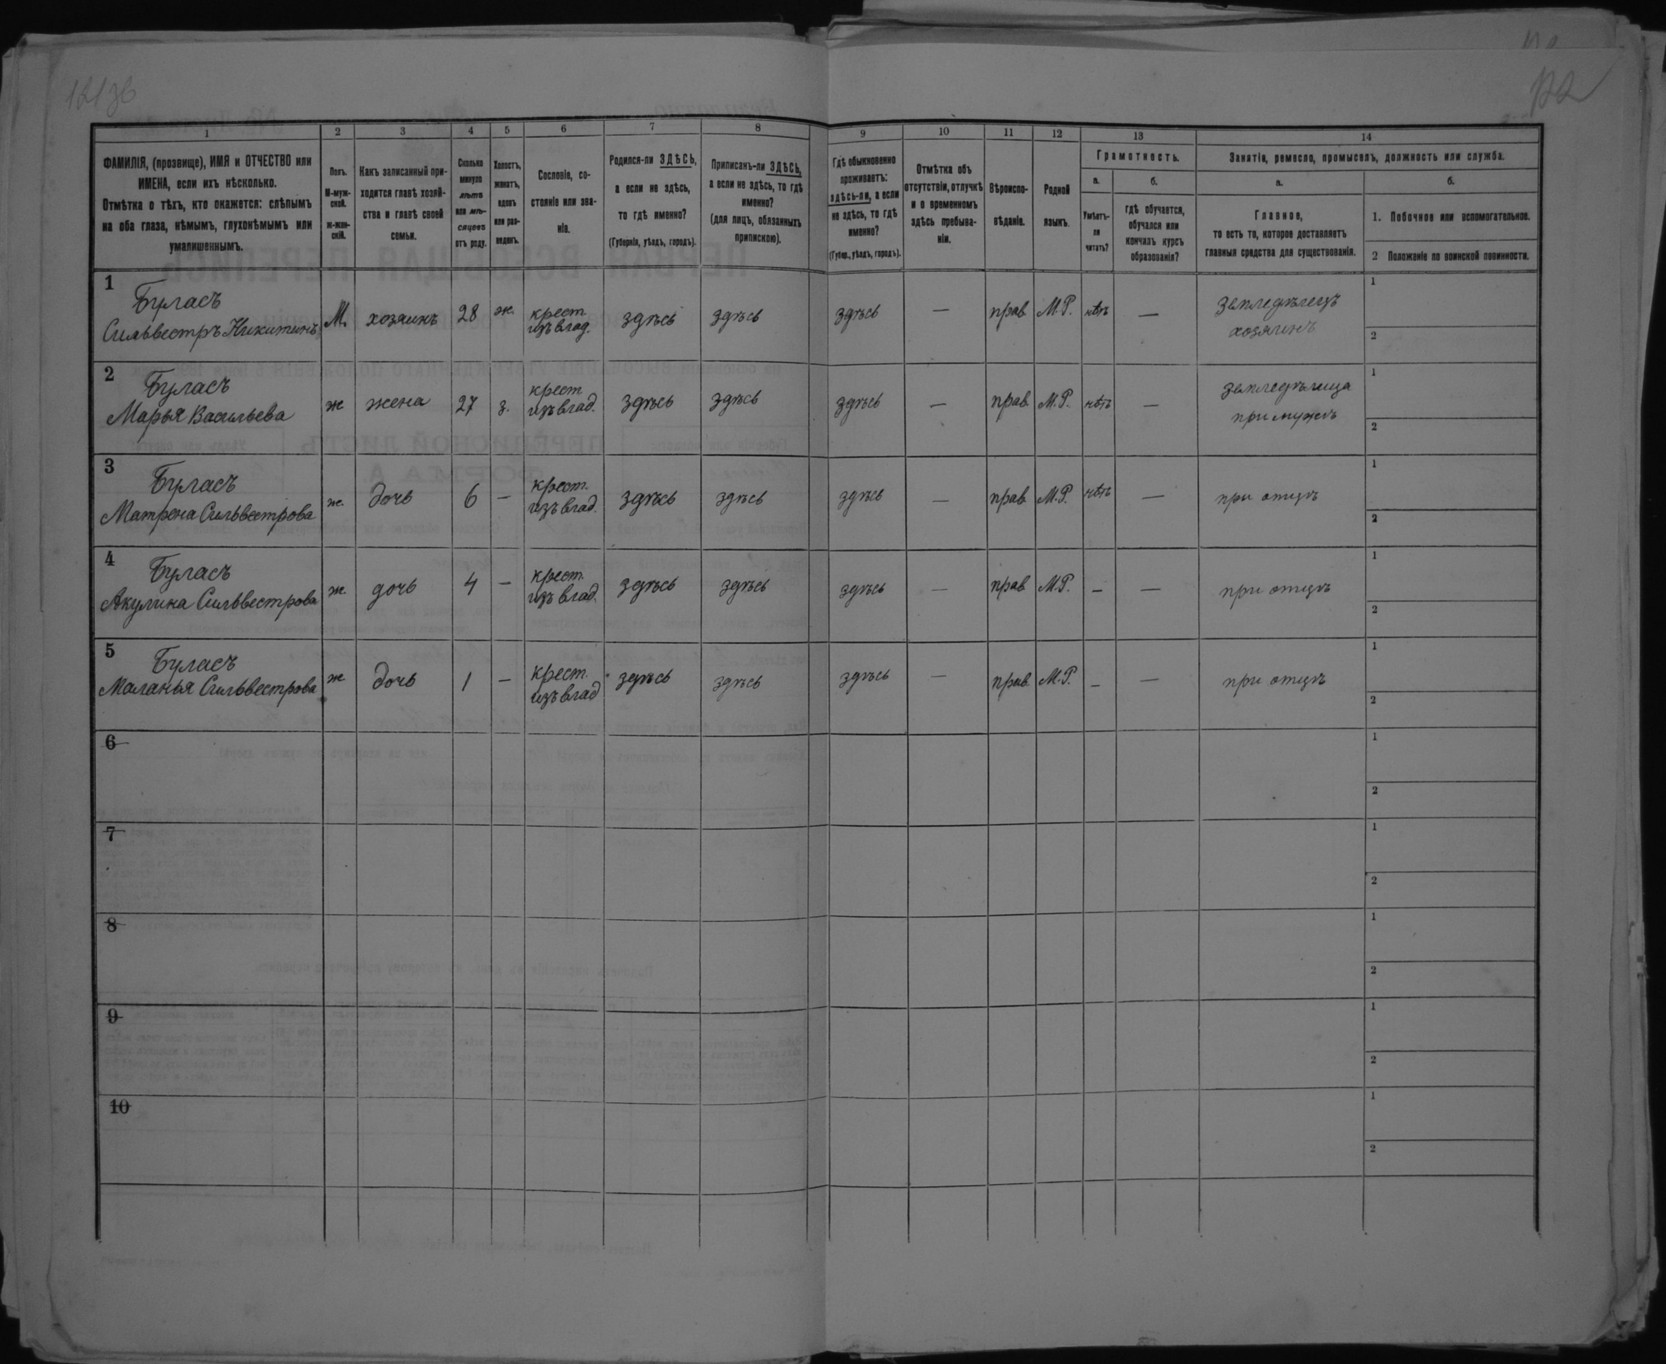 121 зв
122
1
2
3
4
5
6
7
8
9
10
11
12
13
14
ФАМИЛІЯ, (прозвище), ИМЯ и ОТЧЕСТВО или
ИМЕНА, если ихъ нѣсколько.
Отмѣтка о тѣхъ, кто окажется: слѣпымъ
на оба глаза, нѣмымъ, глухонѣмымъ или
умалишеннымъ.
Полъ.
М-муж-
ской.
ж-жен-
скій.
Какъ записанный при-
ходится главѣ хозяй-
ства и главѣ своей
семьи.
Сколько
минуло
лѣтъ
или мѣ-
сяцевъ
отъ роду.
Холостъ,
женатъ,
вдовъ
или раз-
веденъ.
Сословіе, со-
стояніе или зва-
ніе.
Родился-ли ЗДѢСЬ,
а если не здѣсь,
то гдѣ именно?
(Губернія, уѣздъ, городъ).
Приписанъ-ли ЗДѢСЬ,
а если не здѣсь, то гдѣ
именно?
(для лицъ, обязанныхъ
припискою).
Гдѣ обыкновенно
проживаетъ:
здѣсь-ли, а если
не здѣсь, то гдѣ
именно?
(Губер., уѣздъ, городъ).
Отмѣтка объ
отсутствіи, отлучкѣ
и о временномъ
здѣсь пребыва-
ніи.
Вѣроиспо-
вѣданіе.
Родной
языкъ.
Грамотность.
а.
Умѣетъ-
ли
читать?
б.
гдѣ обучается,
обучался или
кончилъ курсъ
образованія?
Занятіе, ремесло, промыселъ, должность или служба.
а.
Главное,
то есть то, которое доставляетъ
главныя средства для существованія.
б.
1. Побочное или вспомогательное.
2 Положеніе по воинской повинности.
1
Буласъ
Сильвестръ Никитинъ
М.
хозяинъ
28
ж.
крест.
изъ влад.
здѣсь
здѣсь
здѣсь
—
прав
М.Р.
нѣтъ
—
земледѣлецъ
хозяинъ
1
2
2
Буласъ
Марья Васильева
ж
жена
27
з.
крест
изъ влад.
здѣсь
здѣсь
здѣсь
—
прав
М.Р.
нѣтъ
—
земледѣлица
при мужѣ
1
2
3
Буласъ
Матрена Сильвестрова
ж.
дочь
6
—
крест.
изъ влад.
здѣсь
здѣсь
здѣсь
—
прав
М.Р.
нѣтъ
—
при отцѣ
1
2
4
Буласъ
Акулина Сильвестрова
ж.
дочь
4
—
крест.
изъ влад.
здѣсь
здѣсь
здѣсь
—
прав
М.Р.
–
—
при отцѣ
1
2
5
Буласъ
Маланья Сильвестрова
ж
дочь
1
—
крест.
изъ влад
здѣсь
здѣсь
здѣсь
—
прав.
М.Р.
–
—
при отцѣ
1
2
6
1
2
7
1
2
8
1
2
9
1
2
10
1
2